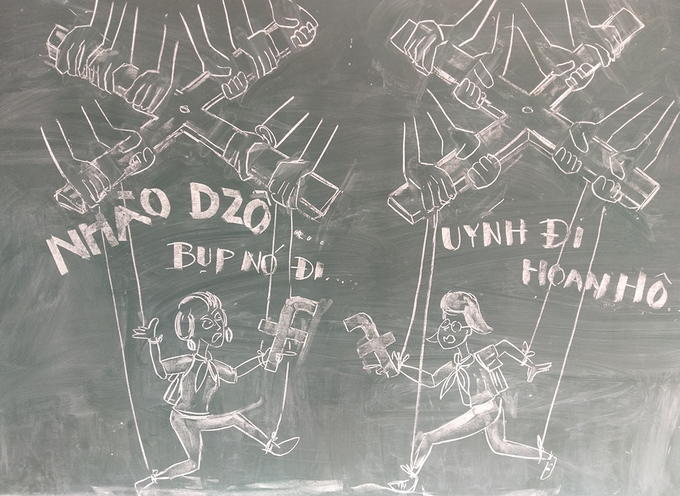 NHÀO DZÔ
BỤP NÓ ĐI...
UYNH ĐI
HOAN HÔ
f
f